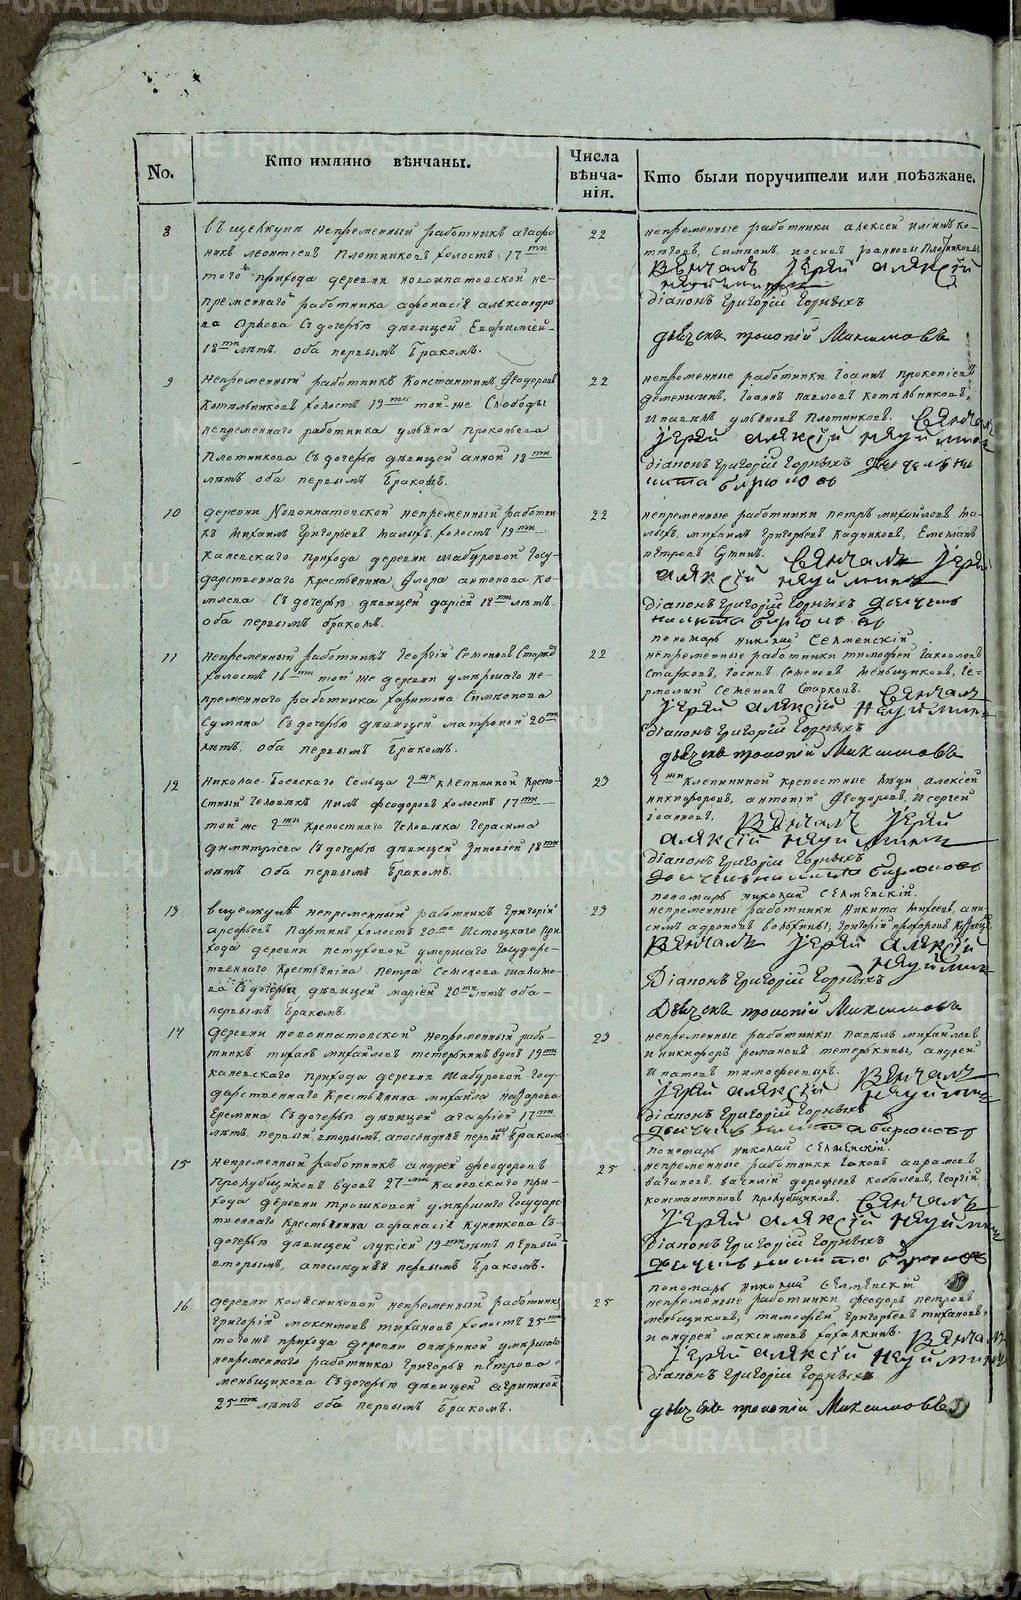 No.
Кто имянно вѣнчаны.
Числа
вѣнча-
нія.
Кто были поручители или поѣзжане.
8
непременный работникъ
никъ леонтіевъ Плотниковъ холостъ 17
того прихода деревни новоипатовской не-
пременнаго работника афонасія александро
ва Орлова съ дочерью дѣвицей Евфиміей
18 лѣтъ. оба первымъ бракомъ.
22
непременные работники алексей
Іоанновы Плотниковы
Вѣнчалъ Іерей алексій
Діаконъ Григорій Горныхъ
дьячекъ прокопій Максимовъ
9
Непременный работникъ Константинъ Феодоровъ
Котельниковъ холостъ 19 той-же Слободы
непременнаго работника ульяна Прокопьева
Плотникова съ дочерью дѣвицей анной 18
лѣтъ оба первымъ бракомъ.
22
непременные работники Іоаннъ прокопіевъ
Іоаннъ павловъ Котельниковъ,
ульяновъ Плотниковъ. Вѣнчалъ
Іерей алексій
діаконъ Григорій Горныхъ
10
деревни Новоипатовской непременный работни-
къ Михаилъ Григорьевъ Малыхъ холостъ 19
каневскаго прихода деревни Шабуровой Госу-
дарственнаго крестьянина Флора антонова
съ дочерью дѣвицей даріей 18 лѣтъ.
оба первымъ бракомъ.
22
непременные работники петръ михайловъ Ма-
лыхъ, михаилъ Григорьевъ Кадниковъ, Емельянъ
петровъ Суминъ. Вѣнчалъ Іерей
алексій
діаконъ Григорій Горныхъ
пономарь николай Селменскій
11
непременный работникъ Георгій Семеновъ Старковъ
холостъ 16 той же деревни умершаго не-
пременнаго работника харитона Симпонова
Сумина съ дочерью дѣвицей матроной 20
лѣтъ. оба первымъ бракомъ.
22
непременные работники тимофей іаковлевъ
Старковъ, Іосипъ Семеновъ Меньщиковъ,
Семеновъ Старковъ. Вѣнчалъ
Іерей алексій
діаконъ Григорій Горныхъ
дьячекъ прокопій Максимовъ
12
Николае-Боевскаго Сельца Клепининой крепо-
стный человѣкъ Нилъ феодоровъ холостъ 17
той же крепостнаго человѣка Герасима
димитріева съ дочерью дѣвицей Зиновіей 18
лѣтъ оба первымъ бракомъ.
23
Клепининой крепостные люди алексей
никифоровъ, антоній Феодоровъ, и сергей
іоанновъ. Вѣнчалъ Іерей
алексій
діаконъ Григорій Горныхъ
пономарь николай Селменскій.
13
непременный работникъ Григорій
арефьевъ Партинъ холостъ 20 Истоцкаго при
хода деревни петуховой умершаго Государс-
твеннаго крестьянина петра Семенова
съ дочерью дѣвицей маріей 20 лѣтъ оба
первымъ бракомъ.
23
непременные работники Никита
Григорій прохоровъ
Вѣнчалъ Іерей алексій
Діаконъ Григорій Горныхъ
Дьячекъ прокопій Максимовъ
14
Деревни новоипатовской непременный рабо-
тникъ михайловъ тетеркинъ вдовъ 19
каневскаго прихода деревни Шабуровой Госу-
дарственнаго крестьянина михайла назарова
Еремина съ дочерью дѣвицей агафіей 17
лѣтъ. первый вторымъ, а последняя первымъ бракомъ.
23
непременные работники Павелъ михайловъ
и никифоръ романовъ тетеркины, андрей
ипатовъ тимофеевыхъ. Вѣнчалъ
Іерей алексій
діаконъ Григорій Горныхъ
пономарь николай Селменскій.
15
непременный работникъ андрей феодоровъ
Прокубщиковъ вдовъ 27 каневскаго при-
хода деревни трошковой умершаго Государс-
твеннаго крестьянина афанасія Куликова съ
дочерью дѣвицей лукіей 19 лѣтъ первый
вторымъ, а последняя первымъ бракомъ.
25
непременные работники іаковъ аврамовъ
василій дорофеевъ кобелевъ, георгій
константиновъ прокубщиковъ. Вѣнчалъ
Іерей алексій
діаконъ Григорій Горныхъ
пономарь николай Селменскій
16
деревни колясниковой непременный работникъ
Григорій максимовъ тихановъ холостъ 25
тогожъ прихода деревни умершаго
непременнаго работника Григорья петрова
меньщикова съ дочерью дѣвицей агрипиной
25 лѣтъ оба первымъ бракомъ.
25
непременные работники феодоръ петровъ
меньщиковъ, тимофей Григорьевъ тихановъ,
и андрей максимовъ Вѣнчалъ
Іерей алексій
діаконъ Григорій Горныхъ
дьячекъ прокопій Максимовъ
METRIKI.GASU-URAL.RU